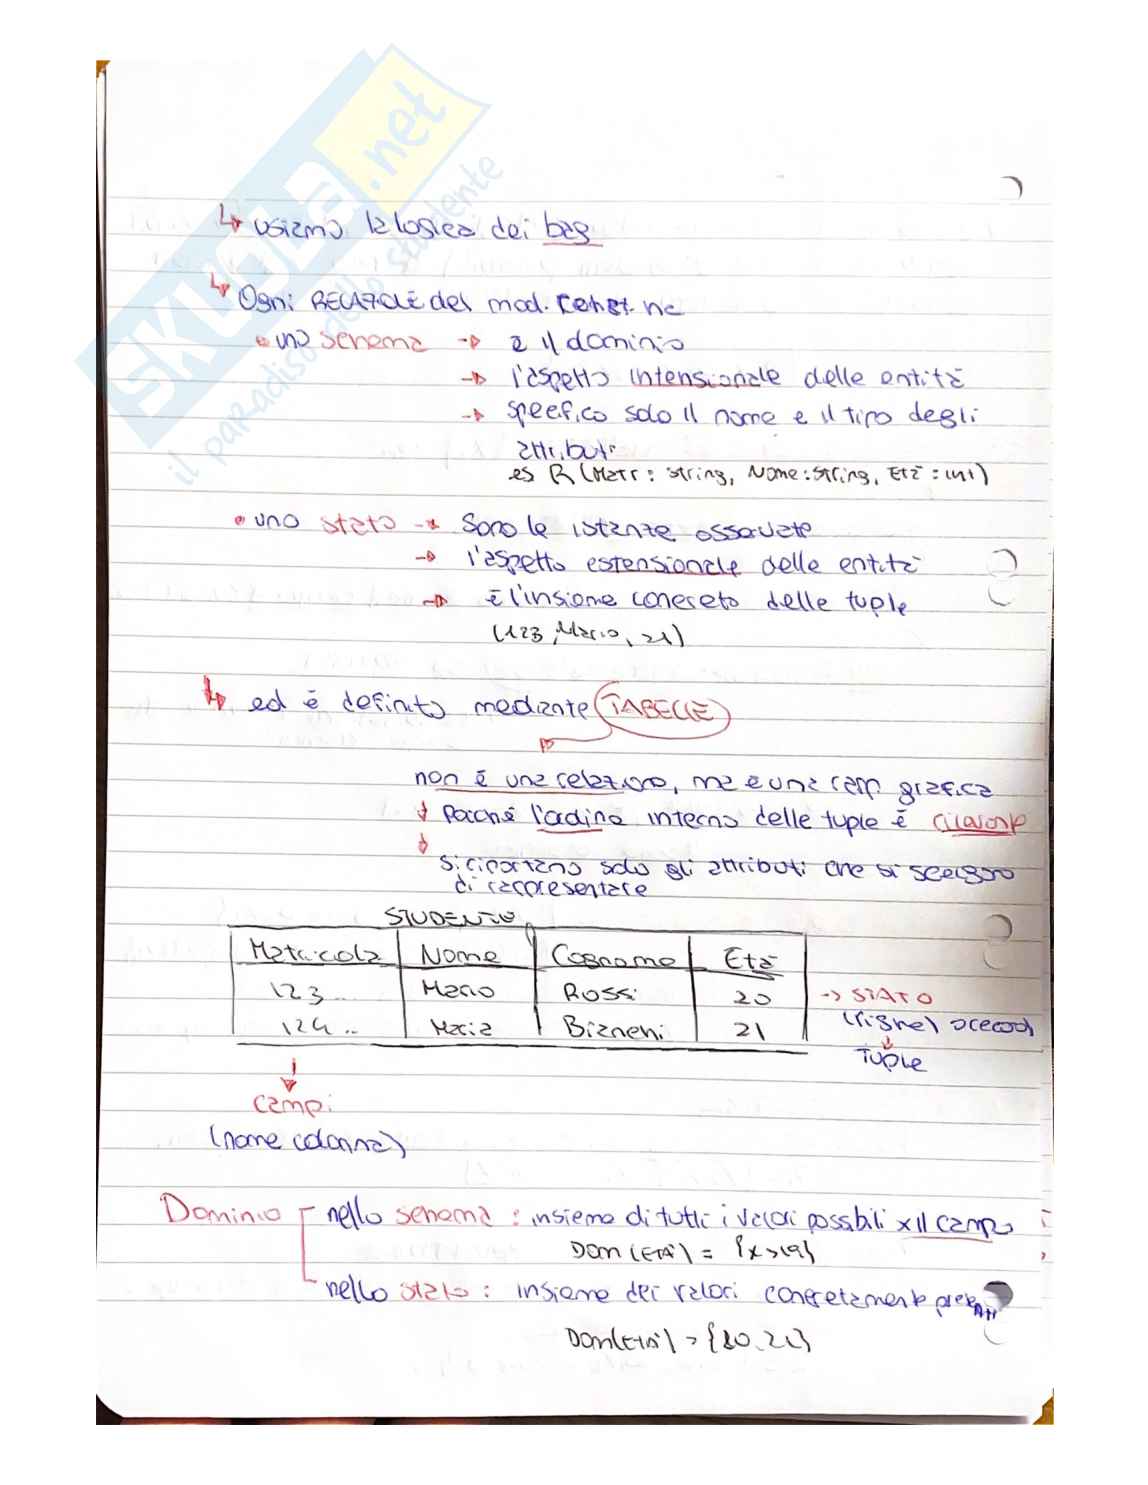 SKUOLA.net
il paradiso dello studente
↳ usiamo la logica dei bag
↳ Ogni RELAZIONE del mod. ha
• uno schema → è il dominio
→ l'aspetto intensionale delle entità
→ specifico solo il nome e il tipo degli
attributi
es R (Matr : string, Nome : string, Età : int)
• uno stato → Sono le istanze osservate
→ l'aspetto estensionale delle entità
→ è l'insieme concreto delle tuple
(123, Mario, 21)
↳ ed è definito mediante TABELLE
non è una relazione, ma è una rapp grafica
↓ Perché l'ordine interno delle tuple è rilevante
↓
si riportano solo gli attributi che si scelgono
di rappresentare
STUDENTE
Matricola Nome Cognome Età
123.. Mario Rossi 20 → STATO
124.. Maria Bianchi 21 (righe) record
↓
Tuple
↓
campi
(nome colonna)
Dominio nello schema : insieme di tutti i valori possibili x il campo
Dom (ETÀ) = {x>19}
nello stato : insieme dei valori concretamente presenti
Dom(ETÀ) = {20, 21}